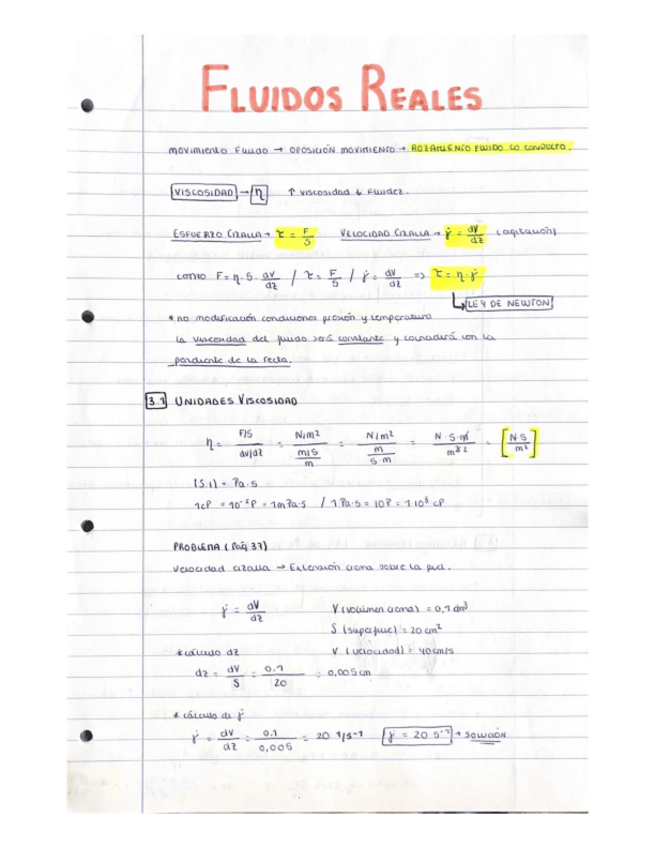 FLUIDOS REALES
movimiento Fluido → oposición movimiento → ROZAMIENTO FLUIDO CO CONDUCTO.
VISCOSIDAD → η ↑ viscosidad ↓ Fluidez.
ESFUERZO CIZALLA → τ = F/S VELOCIDAD CIZALLA → γ̇ = dV/dz (agitación)
como F = η · S · dV/dz / τ = F/S / γ̇ = dV/dz => τ = η · γ̇
LEY DE NEWTON
* no modificación condiciones presión y temperatura
la viscosidad del fluido será constante y coincidirá con la
pendiente de la recta.
3.1 UNIDADES VISCOSIDAD
η = F/S / dv/dz = N/m² / m/s / m = N/m² / m / s·m = N·S·m / m³ = [N·S / m²]
(S.I) = Pa·s
1cP = 10⁻²P = 1mPa·s / 1Pa·s = 10P = 1·10³ cP
PROBLEMA (Pág 37)
Velocidad cizalla → Extensión crema sobre la piel.
γ̇ = dV/dz V (volumen crema) = 0,1 dm³
S (superficie) = 20 cm²
* cálculo dz V (velocidad) = 40 cm/s
dz = dV/S = 0.1/20 = 0,005 cm
* cálculo de γ̇
γ̇ = dV/dz = 0.1/0,005 = 20 1/s⁻¹ γ̇ = 20 S⁻¹ → SOLUCIÓN